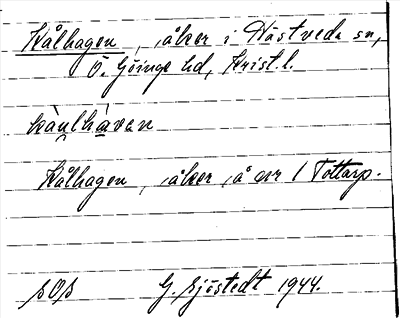 Kålhagen, åker i Hästveda sn,
Ö. Göinge hd, Krist. l.
kàu̯lhàvan
Kålhagen, åker å nr 1 Tottarp.
SOS G. Sjöstedt 1944.